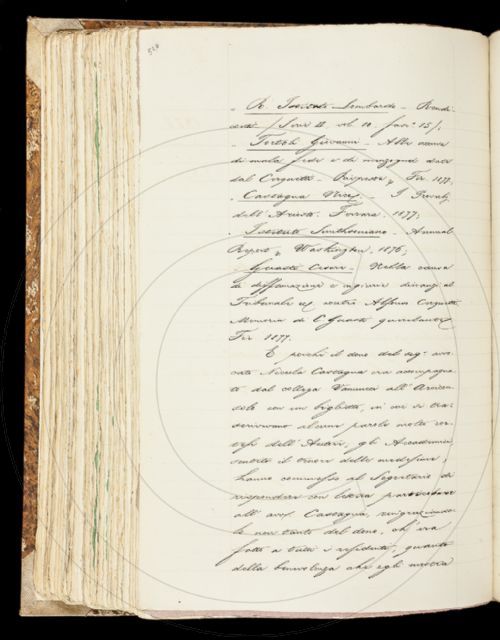 - R. Istituto Lombardo - Rendi-
conti / Serie II. vol. 10 fasc. 15/;
- Fertili Giovanni - Alle accuse
di mala fede e di menzogna date
dal Cerquetti - Risposta, Fir. 1877;
- Castagna Nic. - I Proverbj
dell'Ariosto. Ferrara. 1877;
- Istituto Smithsoniano - Annual
Report, Washington. 1876;
- Guasti Cesare - Nella causa
di diffamazione e ingiurie dinanzi al
Tribunale contro Alfonso Cerquetti
Memoria di C. Guasti querelante
Fir. 1877.
E perchè il dono del sig. avvo-
cato Niccola Castagna era accompagna-
to dal collega Vannucci all'Arcicon-
solo con un biglietto, in cui si tra-
scrivevano alcune parole molto cor-
tesi dell'Autore, gli Accademici,
sentito il tenore delle medesime,
hanno commesso al Segretario di
rispondere con lettera particolare
all'avv. Castagna, ringraziando-
lo non tanto del dono, ch'era
fatto a tutti i residenti, quanto
della benevolenza che egli mostra